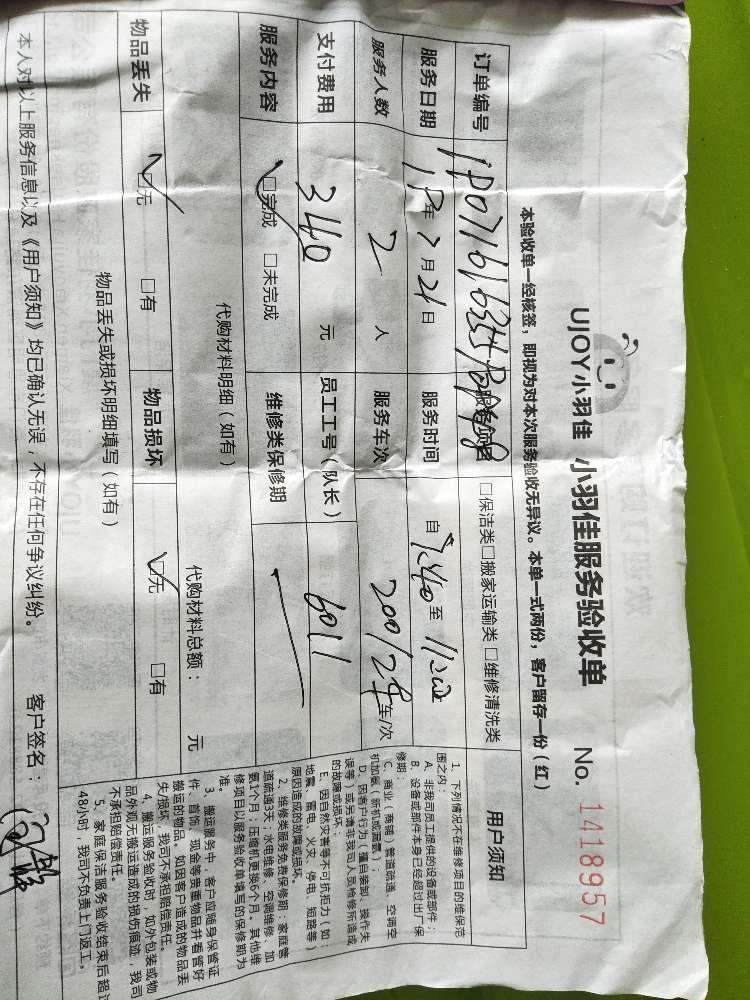 UJOY小羽佳 小羽佳服务验收单 No. 1418957
本验收单一经核签，即视为对本次服务验收无异议。本单一式两份，客户留存一份（红）
订单编号 服务项目 □保洁类□搬家运输类□维修清洗类
服务日期 19年7月21日 服务时间 自 至
服务人数 2 人 服务车次 200/2 车/次
支付费用 340 元 员工工号（队长） 6011
服务内容 □完成 □未完成 维修类保修期
代购材料明细（如有） 代购材料总额： 元
物品丢失 □无 □有 物品损坏 □无 □有
物品丢失或损坏明细填写（如有）
本人对以上服务信息以及《用户须知》均已确认无误，不存在任何争议纠纷。 客户签名：
用户须知
1、下列情况不在维修项目的维保范
围之内：
A、非我司员工提供的设备或部件；
B、设备或部件本身已经超过出厂保
修期；
C、商业（商铺）管道疏通、空调空
机加氨（新机或漏氨）；
D、因客户行为（擅自装卸、操作失
误等）或另请非我司人员检修所造成
的故障或损坏；
E、因自然灾害等不可抗拒力（如：
地震、雷电、火灾、停电、短路等）
原因造成的故障或损坏。
2、维修类服务免费保修期：家庭管
道疏通5天；水电维修、空调维修、加
氨1个月；压缩机更换6个月，其他维
修项目以服务验收单填写的保修期为
准。
3、搬运服务中，客户应随身保管证
件、首饰、现金等贵重物品并看管好
搬运的物品。如因客户造成的物品丢
失损坏，我司不承担赔偿责任。
4、搬运服务验收时，如外包装或物
品外观无搬运造成的损伤痕迹，我司
不承担赔偿责任。
5、家庭保洁服务验收结束后超过
48小时，我司不负责上门返工。